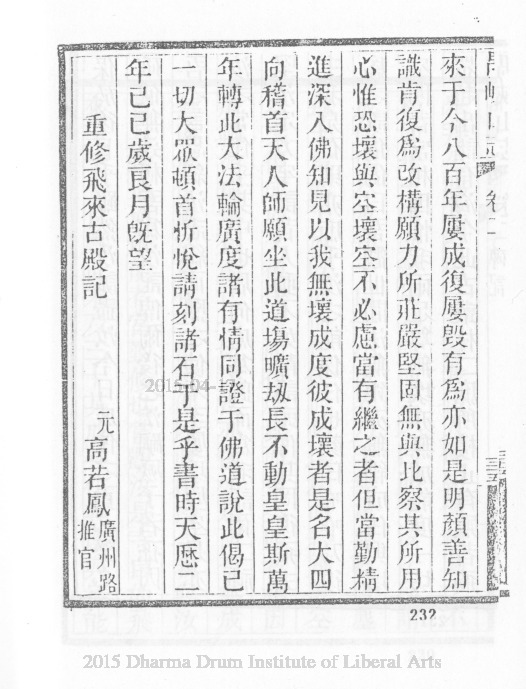 卷二
來于今八百年屢成復屢毁有爲亦如是明顏善知
識肯復爲改構願力所莊嚴堅固無與比察其所用
心惟恐壞與空壞空不必慮當有繼之者但當勤精
進深入佛知見以我無壞成度彼成壞者是名大四
向稽首天人師願坐此道塲曠刼長不動皇皇斯萬
年轉此大法輪廣度諸有情同證于佛道說此偈已
一切大眾頓首忻悅請刻諸石于是乎書時天厯二
年己巳歲艮月旣望
重修飛來古殿記
元高若鳳廣州路
推官
232
2015 Dharma Drum Institute of Liberal Arts